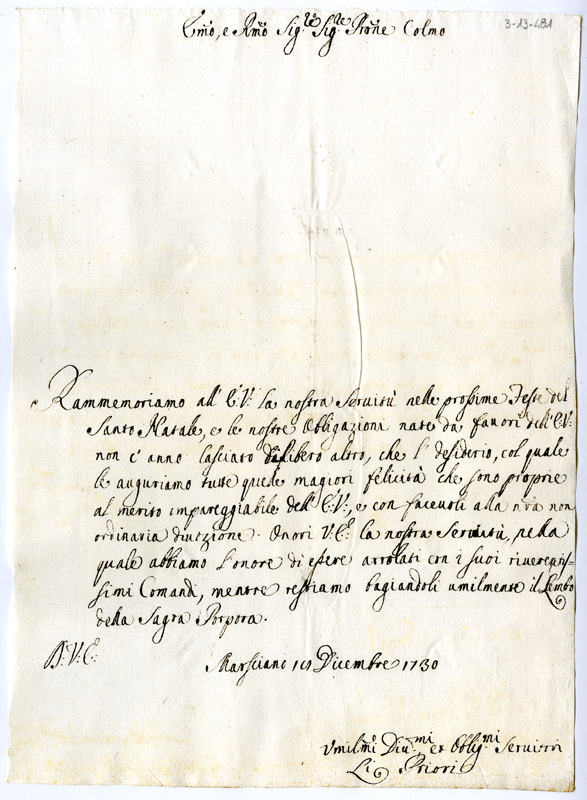 3-13-481
Em̃o, e Rm̃o Sig.re Sig.re Prõne Colmo
Rammemoriamo all' E.V. la nostra Servitù nelle prossime Feste del
Santo Natale, e le nostre Obligazioni nate da favori dell' E.V.
non c' anno lasciato di libero altro, che l' desiderio, col quale
le auguriamo tutte quele magiori felicità che sono proprie
al merito impareggiabile dell' E.V., e con faceuoli alla nr̃a non
ordinaria diuozione. Onori V.E. la nostra Seruitù, nella
quale abbiamo l'onore di essere arrolati con i suoi riueritis-
simi Comandi, mentre restiamo bagiandoli umilmente il Lembo
della Sagra Porpora.
D. V. E.
Marsciano 19 Dicembre 1730
Vmilm̃i Diu.mi et Oblig.mi Seruitori
Li Priori